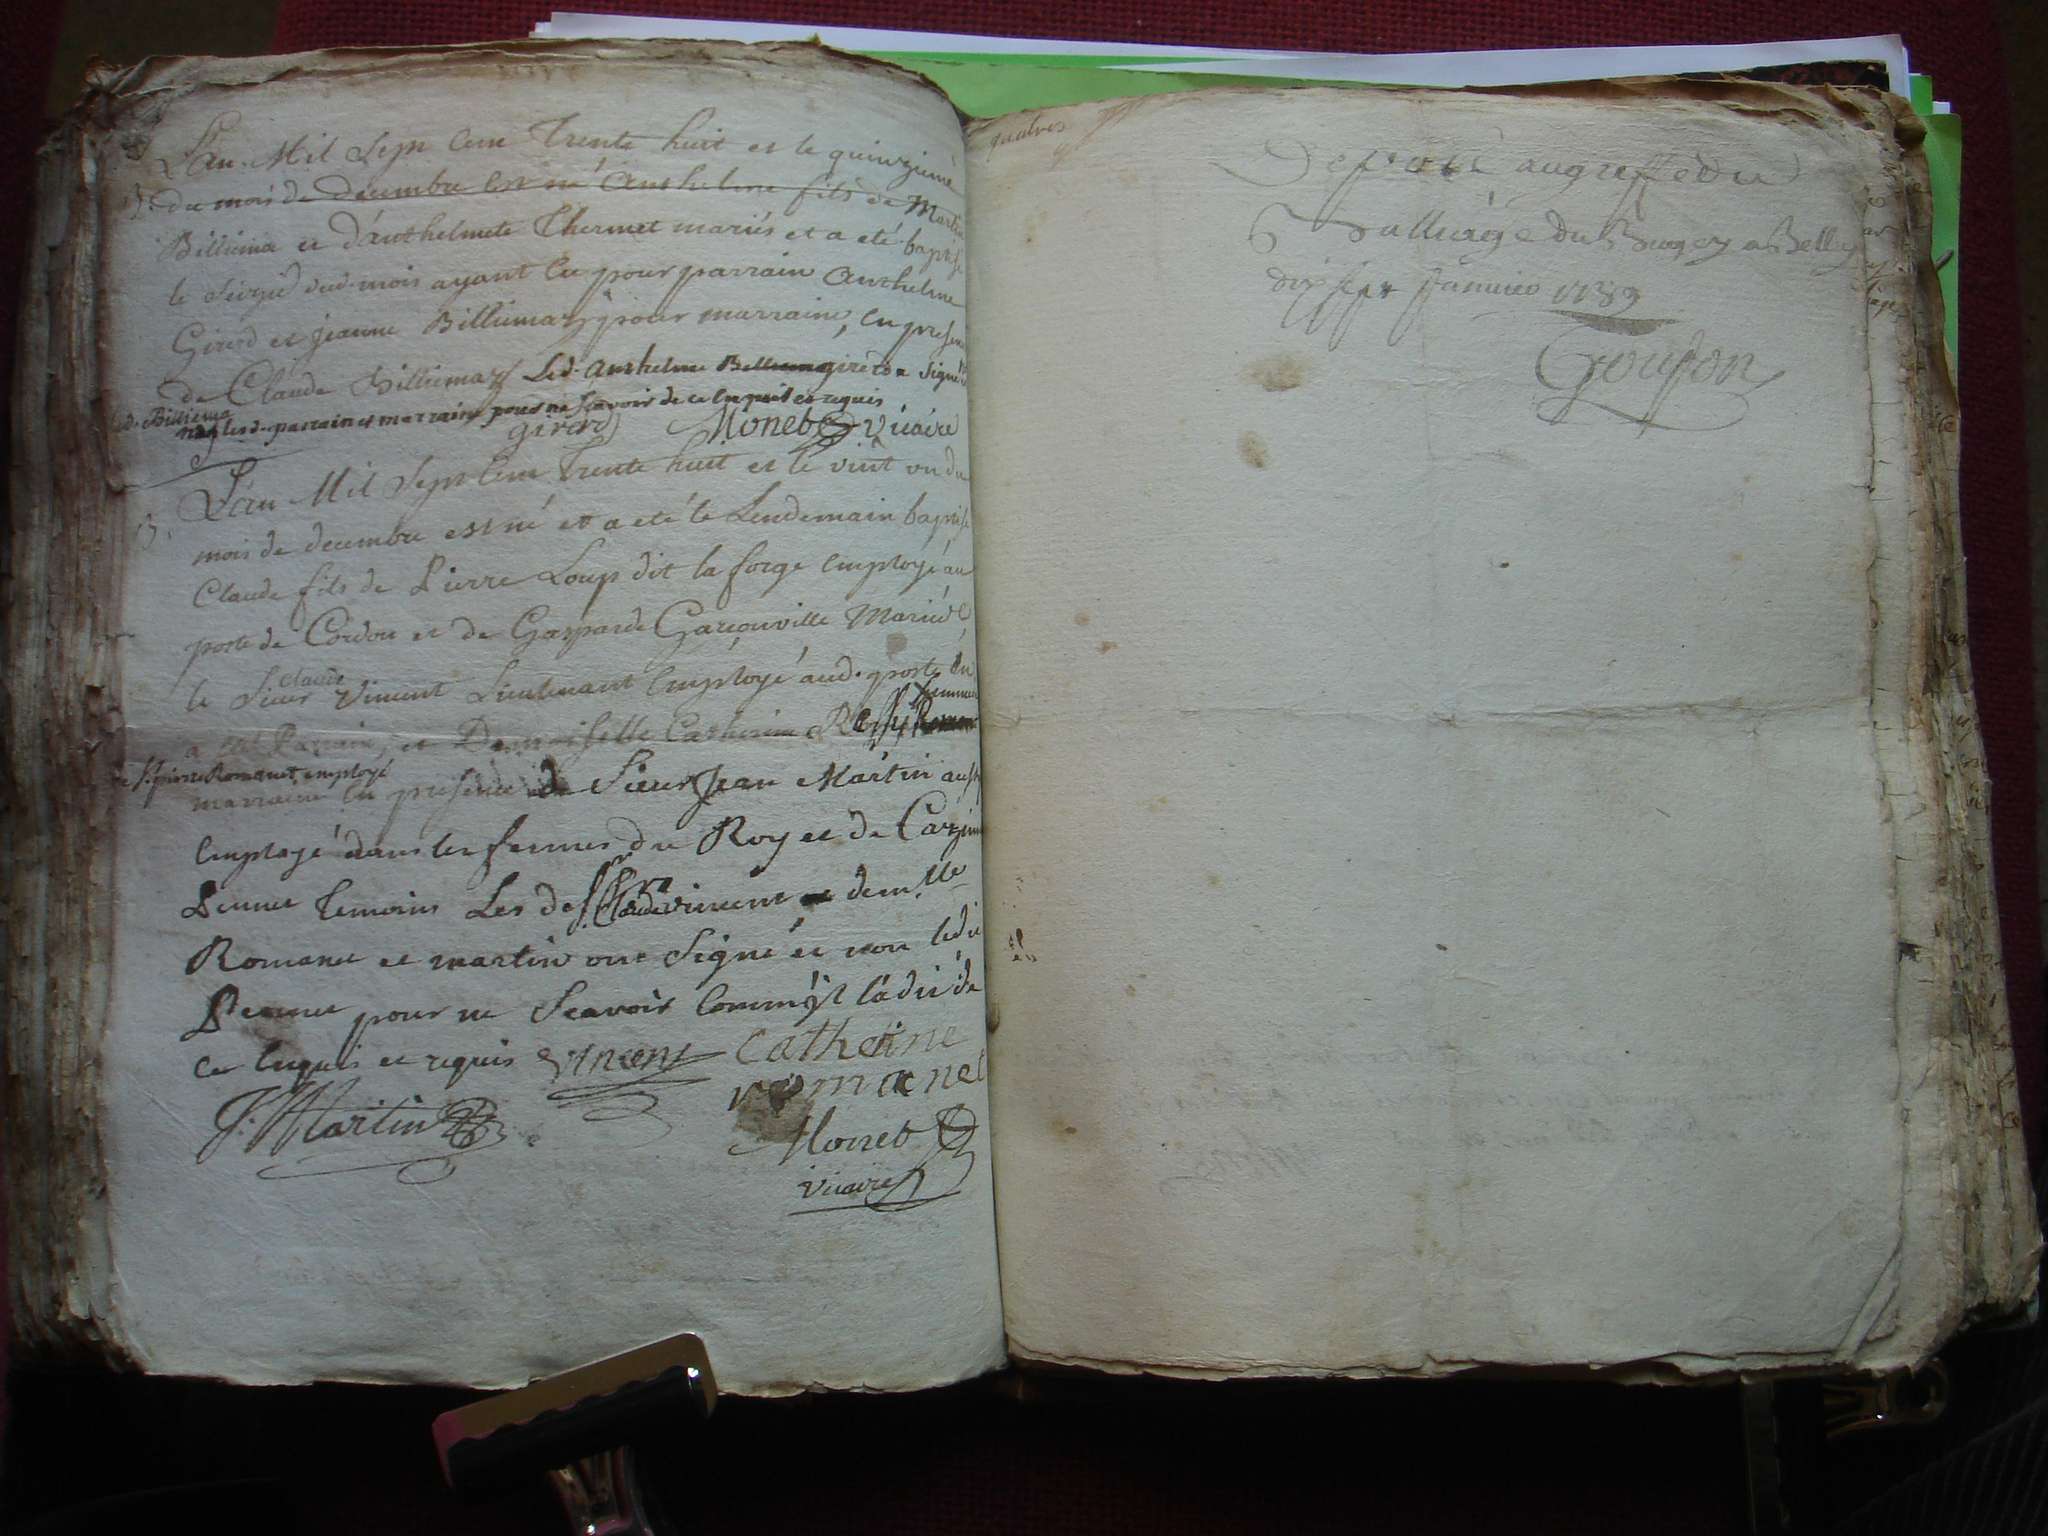 L'an Mil Sept Cent Trente huit et le quinzieme
B. du mois de decembre est né Anthelme fils de Martin
Billiema et d'Anthelmete Thermet mariés et a eté baptisé
le seizie dud. mois ayant eu pour parrain Anthelme
Girerd et jeanne Billiemaz pour marraine, en presence
de Claude Billiemaz Led. Anthelme girerd a signé
led. Billiema
les d. parrain et marraine pour ne scavoir de ce enquis et requis
girerd Monet Vicaire
L'an Mil Sept Cent Trente huit et le vint un du
B. mois de decembre est né et a eté le Lendemain baptisé
Claude fils de Pierre Loup dit la forge Employé au
poste de Cordon et de Gasparde Garconville Mariés
claude
le Sieur Vincent Lieutenant Employé aud. poste en
a eté Parrain, et Demoiselle Catherine femme
de Sr. pierre Romanet employé
marraine en presence de Sieur Jean Martin aussy
Employé dans les fermes du Roy et de
temoins Les Claude vincent dem.lle
Romanet et martin ont signé et non ledit
pour ne scavoir comm'jl l'a dit de
ce enquis et requis Vincent Catherine
romanet
J. Martin Monet
Vicaire
Deposé au greffe du
Balliage du Bugey a Belley
dix sept Janvier 1739
Goujon